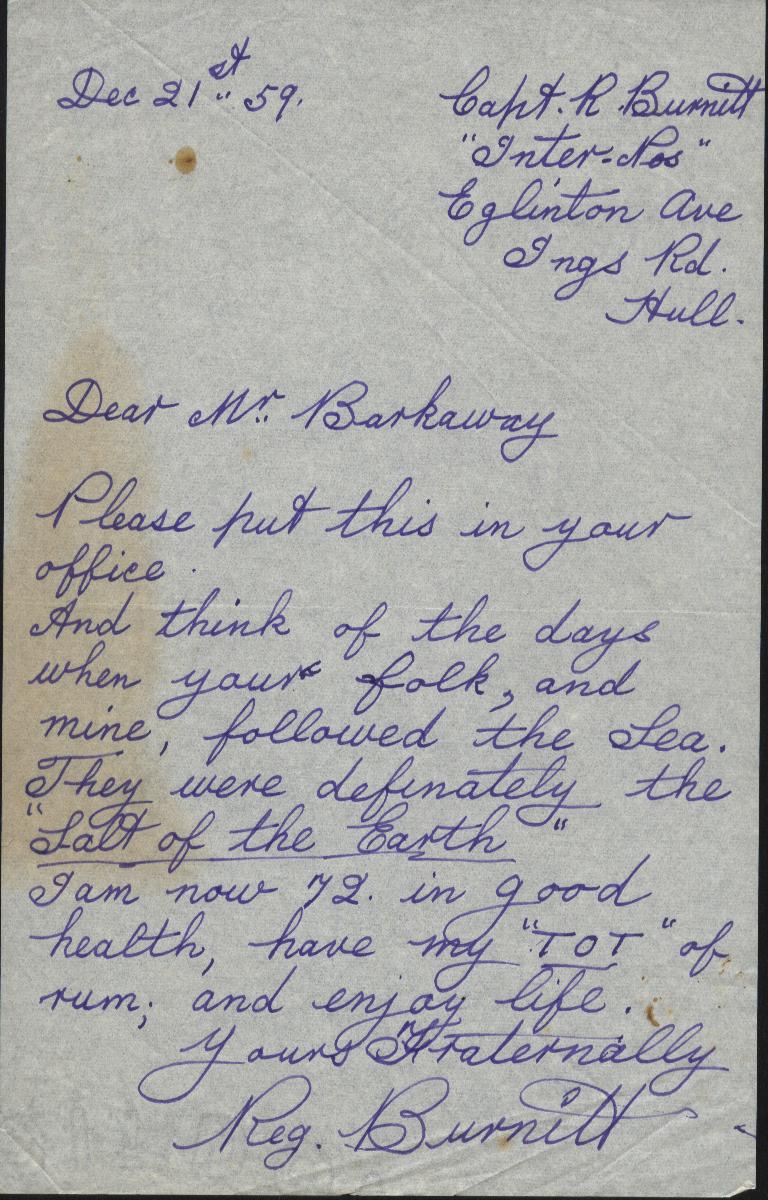 Dec 21st 59.
Capt. R. Burnitt
"Inter-Nos"
Eglinton Ave
Ings Rd.
Hull.
Dear Mr. Barkaway
Please put this in your
office.
And think of the days
when your folk, and
mine, followed the Sea.
They were definately the
"Salt of the Earth"
I am now 72. in good
health, have my "TOT" of
rum; and enjoy life.
Yours Fraternally
Reg. Burnitt